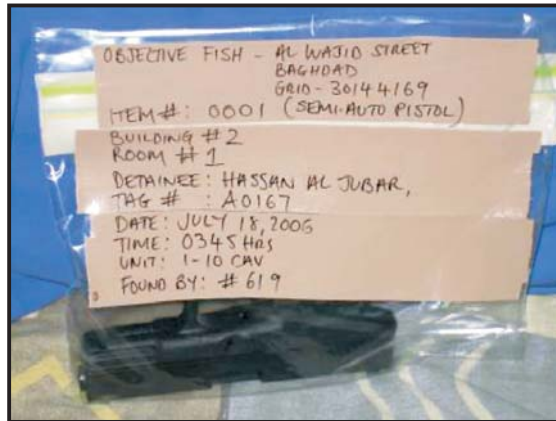 OBJECTIVE FISH - AL WAJID STREET
BAGHDAD
GRID - 30144169
ITEM #: 0001 (SEMI-AUTO PISTOL)
BUILDING # 2
ROOM # 1
DETAINEE: HASSAN AL JUBAR,
TAG # : A0167
DATE: JULY 18, 2006
TIME: 0345 HRS
UNIT: 1-10 CAV
FOUND BY: # 619